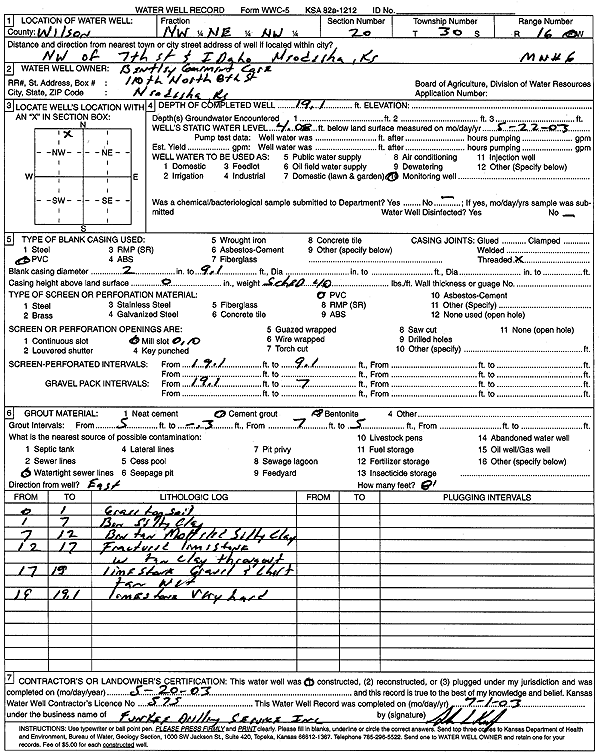 WATER WELL RECORD Form WWC-5 KSA 82a-1212 ID No.
1 LOCATION OF WATER WELL: Fraction Section Number Township Number Range Number
County: Wilson NW ¼ NE ¼ NW ¼ 20 T 30 S R 16 E/W
Distance and direction from nearest town or city street address of well if located within city?
NW of 7th st & Idaho Neodesha, Ks MW#6
2 WATER WELL OWNER: Bentley Garment Care
RR#, St. Address, Box # : 110th North 8th St Board of Agriculture, Division of Water Resources
City, State, ZIP Code : Neodesha Ks Application Number:
3 LOCATE WELL'S LOCATION WITH AN "X" IN SECTION BOX:
N
X
NW NE
W E
SW SE
S
4 DEPTH OF COMPLETED WELL 19.1 ft. ELEVATION:
Depth(s) Groundwater Encountered 1 ft. 2 ft. 3 ft.
WELL'S STATIC WATER LEVEL 4.08 ft. below land surface measured on mo/day/yr 5-22-03
Pump test data: Well water was ft. after hours pumping gpm
Est. Yield gpm: Well water was ft. after hours pumping gpm
WELL WATER TO BE USED AS: 5 Public water supply 8 Air conditioning 11 Injection well
1 Domestic 3 Feedlot 6 Oil field water supply 9 Dewatering 12 Other (Specify below)
2 Irrigation 4 Industrial 7 Domestic (lawn & garden) 10 Monitoring well
Was a chemical/bacteriological sample submitted to Department? Yes No ; If yes, mo/day/yrs sample was sub-
mitted Water Well Disinfected? Yes No
5 TYPE OF BLANK CASING USED: 5 Wrought iron 8 Concrete tile CASING JOINTS: Glued Clamped
1 Steel 3 RMP (SR) 6 Asbestos-Cement 9 Other (specify below) Welded
2 PVC 4 ABS 7 Fiberglass Threaded X
Blank casing diameter 2 in. to 9.1 ft., Dia in. to ft., Dia in. to ft.
Casing height above land surface 0 in., weight Sched 40 lbs./ft. Wall thickness or guage No.
TYPE OF SCREEN OR PERFORATION MATERIAL: 7 PVC 10 Asbestos-Cement
1 Steel 3 Stainless Steel 5 Fiberglass 8 RMP (SR) 11 Other (Specify)
2 Brass 4 Galvanized Steel 6 Concrete tile 9 ABS 12 None used (open hole)
SCREEN OR PERFORATION OPENINGS ARE: 5 Guazed wrapped 8 Saw cut 11 None (open hole)
1 Continuous slot 3 Mill slot 0.10 6 Wire wrapped 9 Drilled holes
2 Louvered shutter 4 Key punched 7 Torch cut 10 Other (specify) ft.
SCREEN-PERFORATED INTERVALS: From 19.1 ft. to 9.1 ft., From ft. to ft.
From ft. to ft., From ft. to ft.
GRAVEL PACK INTERVALS: From 19.1 ft. to 7 ft., From ft. to ft.
From ft. to ft., From ft. to ft.
6 GROUT MATERIAL: 1 Neat cement 2 Cement grout 3 Bentonite 4 Other
Grout Intervals: From 5 ft. to .3 ft., From 7 ft. to 5 ft., From ft. to ft.
What is the nearest source of possible contamination: 10 Livestock pens 14 Abandoned water well
1 Septic tank 4 Lateral lines 7 Pit privy 11 Fuel storage 15 Oil well/Gas well
2 Sewer lines 5 Cess pool 8 Sewage lagoon 12 Fertilizer storage 16 Other (specify below)
3 Watertight sewer lines 6 Seepage pit 9 Feedyard 13 Insecticide storage
Direction from well? East How many feet? 8'
FROM TO LITHOLOGIC LOG FROM TO PLUGGING INTERVALS
0 1 Grass topsoil
1 7 Brn Silty Clay
7 12 Brn tan Mottled Silty Clay
12 17 Fractured limestone
w tan Clay throughout
17 19 limestone Gravel & Chert
tan wet
19 19.1 limestone Very hard
7 CONTRACTOR'S OR LANDOWNER'S CERTIFICATION: This water well was (1) constructed, (2) reconstructed, or (3) plugged under my jurisdiction and was
completed on (mo/day/year) 5-20-03 and this record is true to the best of my knowledge and belief. Kansas
Water Well Contractor's Licence No 575 This Water Well Record was completed on (mo/day/yr) 7-1-03
under the business name of Funkee Drilling Service Inc by (signature)
INSTRUCTIONS: Use typewriter or ball point pen. PLEASE PRESS FIRMLY and PRINT clearly. Please fill in blanks, underline or circle the correct answers. Send top three copies to Kansas Department of Health
and Environment, Bureau of Water, Geology Section, 1000 SW Jackson St., Suite 420, Topeka, Kansas 66612-1367. Telephone 785-296-5522. Send one to WATER WELL OWNER and retain one for your
records. Fee of $5.00 for each constructed well.